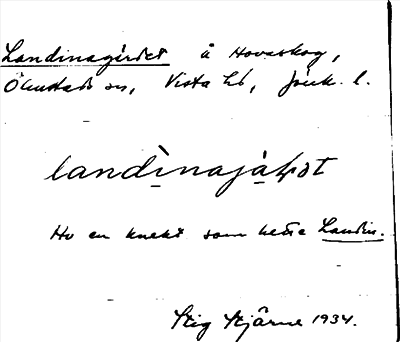 Landinagärdet å Hovaskog,
Ölmstads sn, Vista hd, Jönk. l.
landinajäḷət
Ho en knekt som hette Landin.
Stig Stjärne 1934.